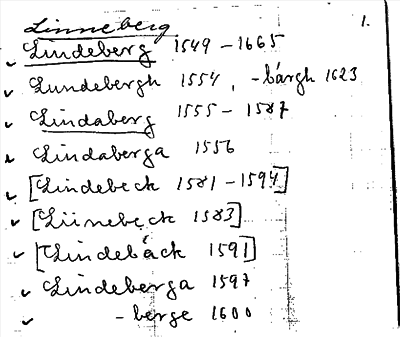 Linneberg 1.
Lindeberg 1549 - 1665
Lundebergh 1554, -bårgh 1623
Lindaberg 1555 - 1587
Lindaberga 1556
[Lindebeck 1581 - 1594]
[Liinebeck 1583]
[Lindebäck 1591]
Lindeberga 1597
-berge 1600